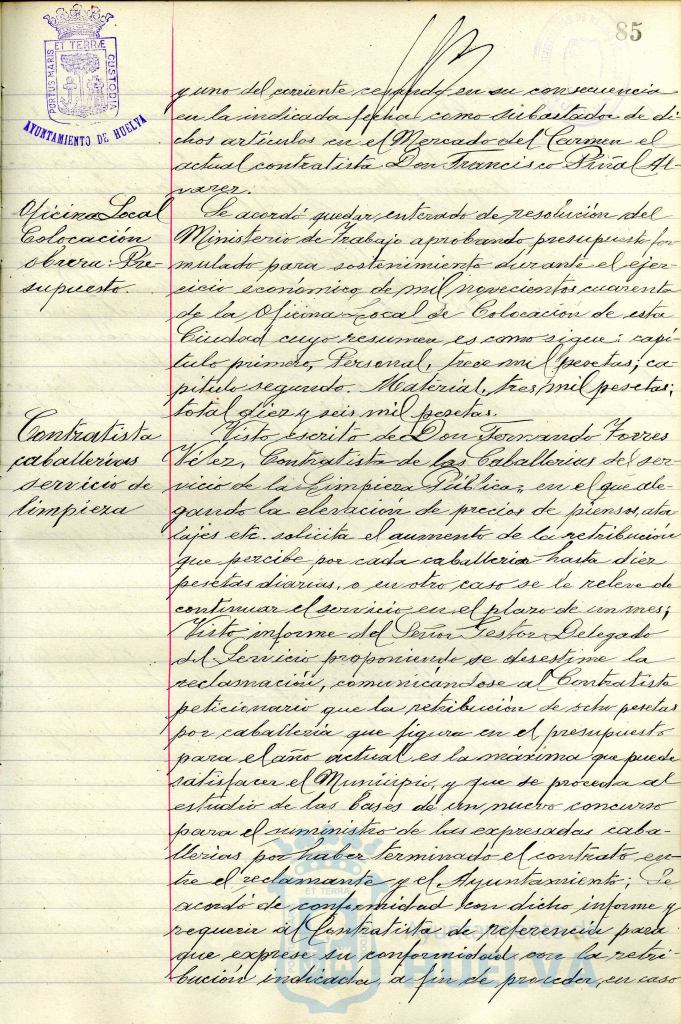 85
PORTUS MARIS ET TERRÆ CUSTODIA
AYUNTAMIENTO DE HUELVA
y uno del corriente cesando en su consecuencia
en la indicada fecha como subastador de di-
chos artículos en el Mercado del Carmen el
actual contratista Don Francisco Piñal Al-
varez.
Oficina Local
Colocación
obrera: Pre-
supuesto.
Se acordó quedar enterado de resolución del
Ministerio de Trabajo aprobando presupuesto for-
mulado para sostenimiento durante el ejer-
cicio económico de mil novecientos cuarenta
de la Oficina Local de Colocación de esta
Ciudad cuyo resumen es como sigue: capí-
tulo primero, Personal, trece mil pesetas; ca-
pítulo segundo. Material, tres mil pesetas;
total diez y seis mil pesetas.
Contratista
caballerias
servicio de
limpieza
Visto escrito de Don Fernando Torres
Vélez, Contratista de las Caballerias del ser-
vicio de la Limpieza Pública, en el que ale-
gando la elevación de precios de piensos, ata
lajes etc. solicita el aumento de la retribución
que percibe por cada caballeria hasta diez
pesetas diarias, o en otro caso se le releve de
continuar el servicio en el plazo de un mes;
Visto informe del Señor Gestor Delegado
del Servicio proponiendo se desestime la
reclamación, comunicándose al Contratista
peticionario que la retribución de ocho pesetas
por caballería que figura en el presupuesto
para el año actual es la máxima que puede
satisfacer el Municipio, y que se proceda al
estudio de las Bases de un nuevo concurso
para el suministro de las expresadas caba-
llerias por haber terminado el contrato en-
tre el reclamante y el Ayuntamiento; Se
acordó de conformidad con dicho informe y
requerir al Contratista de referencia para
que exprese su conformidad con la retri-
bución indicada, a fin de proceder, en caso
Ayuntamiento de
HUELVA